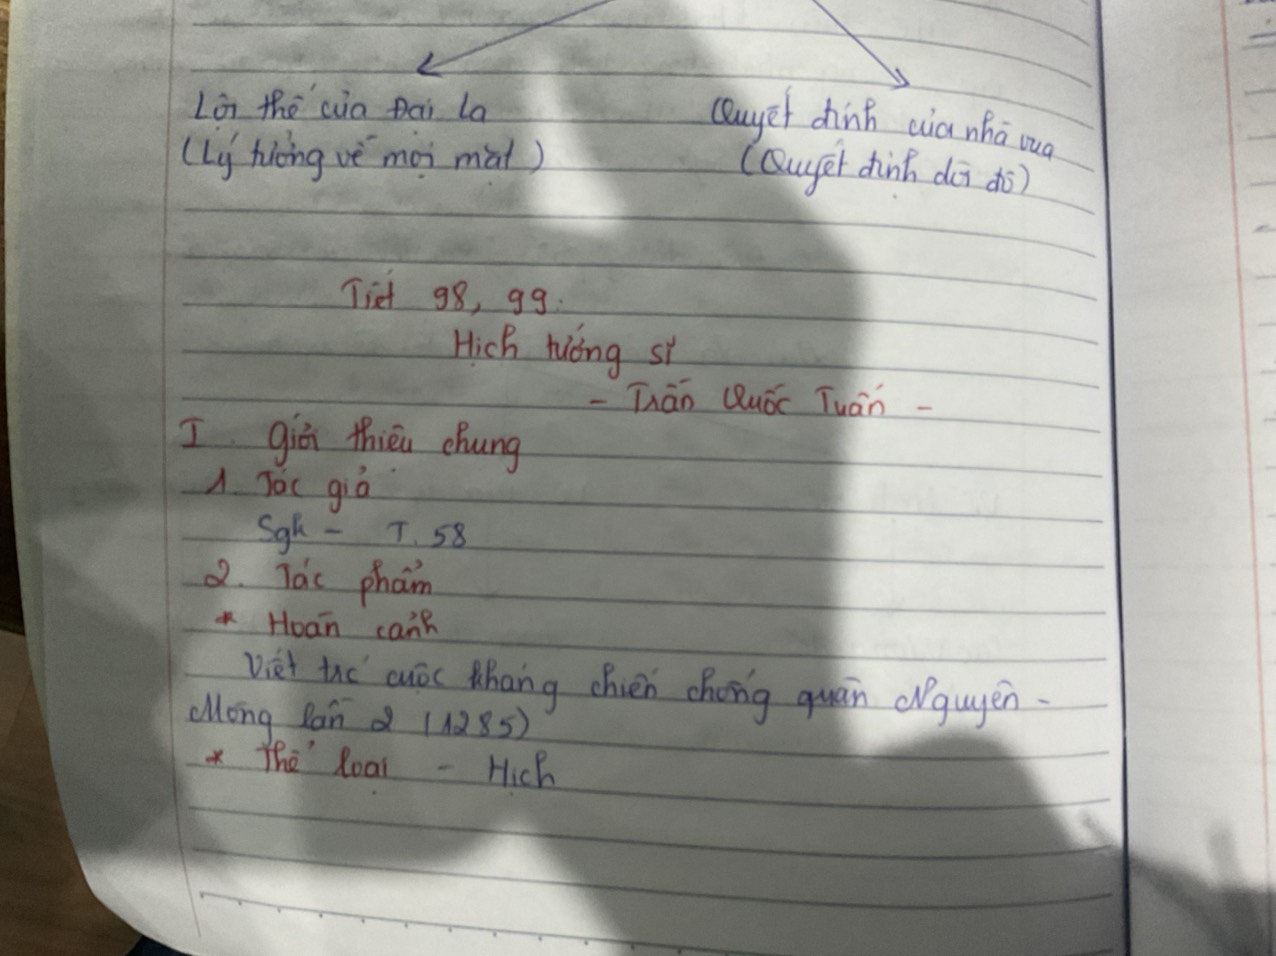 Lợi thế của Đại La
(Lý tưởng về mọi mặt)
Quyết định của nhà vua
(Quyết định dời đô)
Tiết 98, 99.
Hịch tướng sĩ
- Trần Quốc Tuấn -
I. Giới thiệu chung
1. Tác giả
Sgk - T. 58
2. Tác phẩm
* Hoàn cảnh
Viết trc cuộc kháng chiến chống quân Nguyên -
Mông lần 2 (1285)
* Thể loại - Hịch